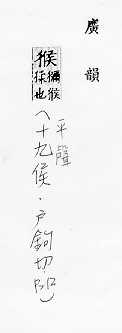 廣韻
猴 獼猴
猱也
平聲
(十九侯.戶鉤切.